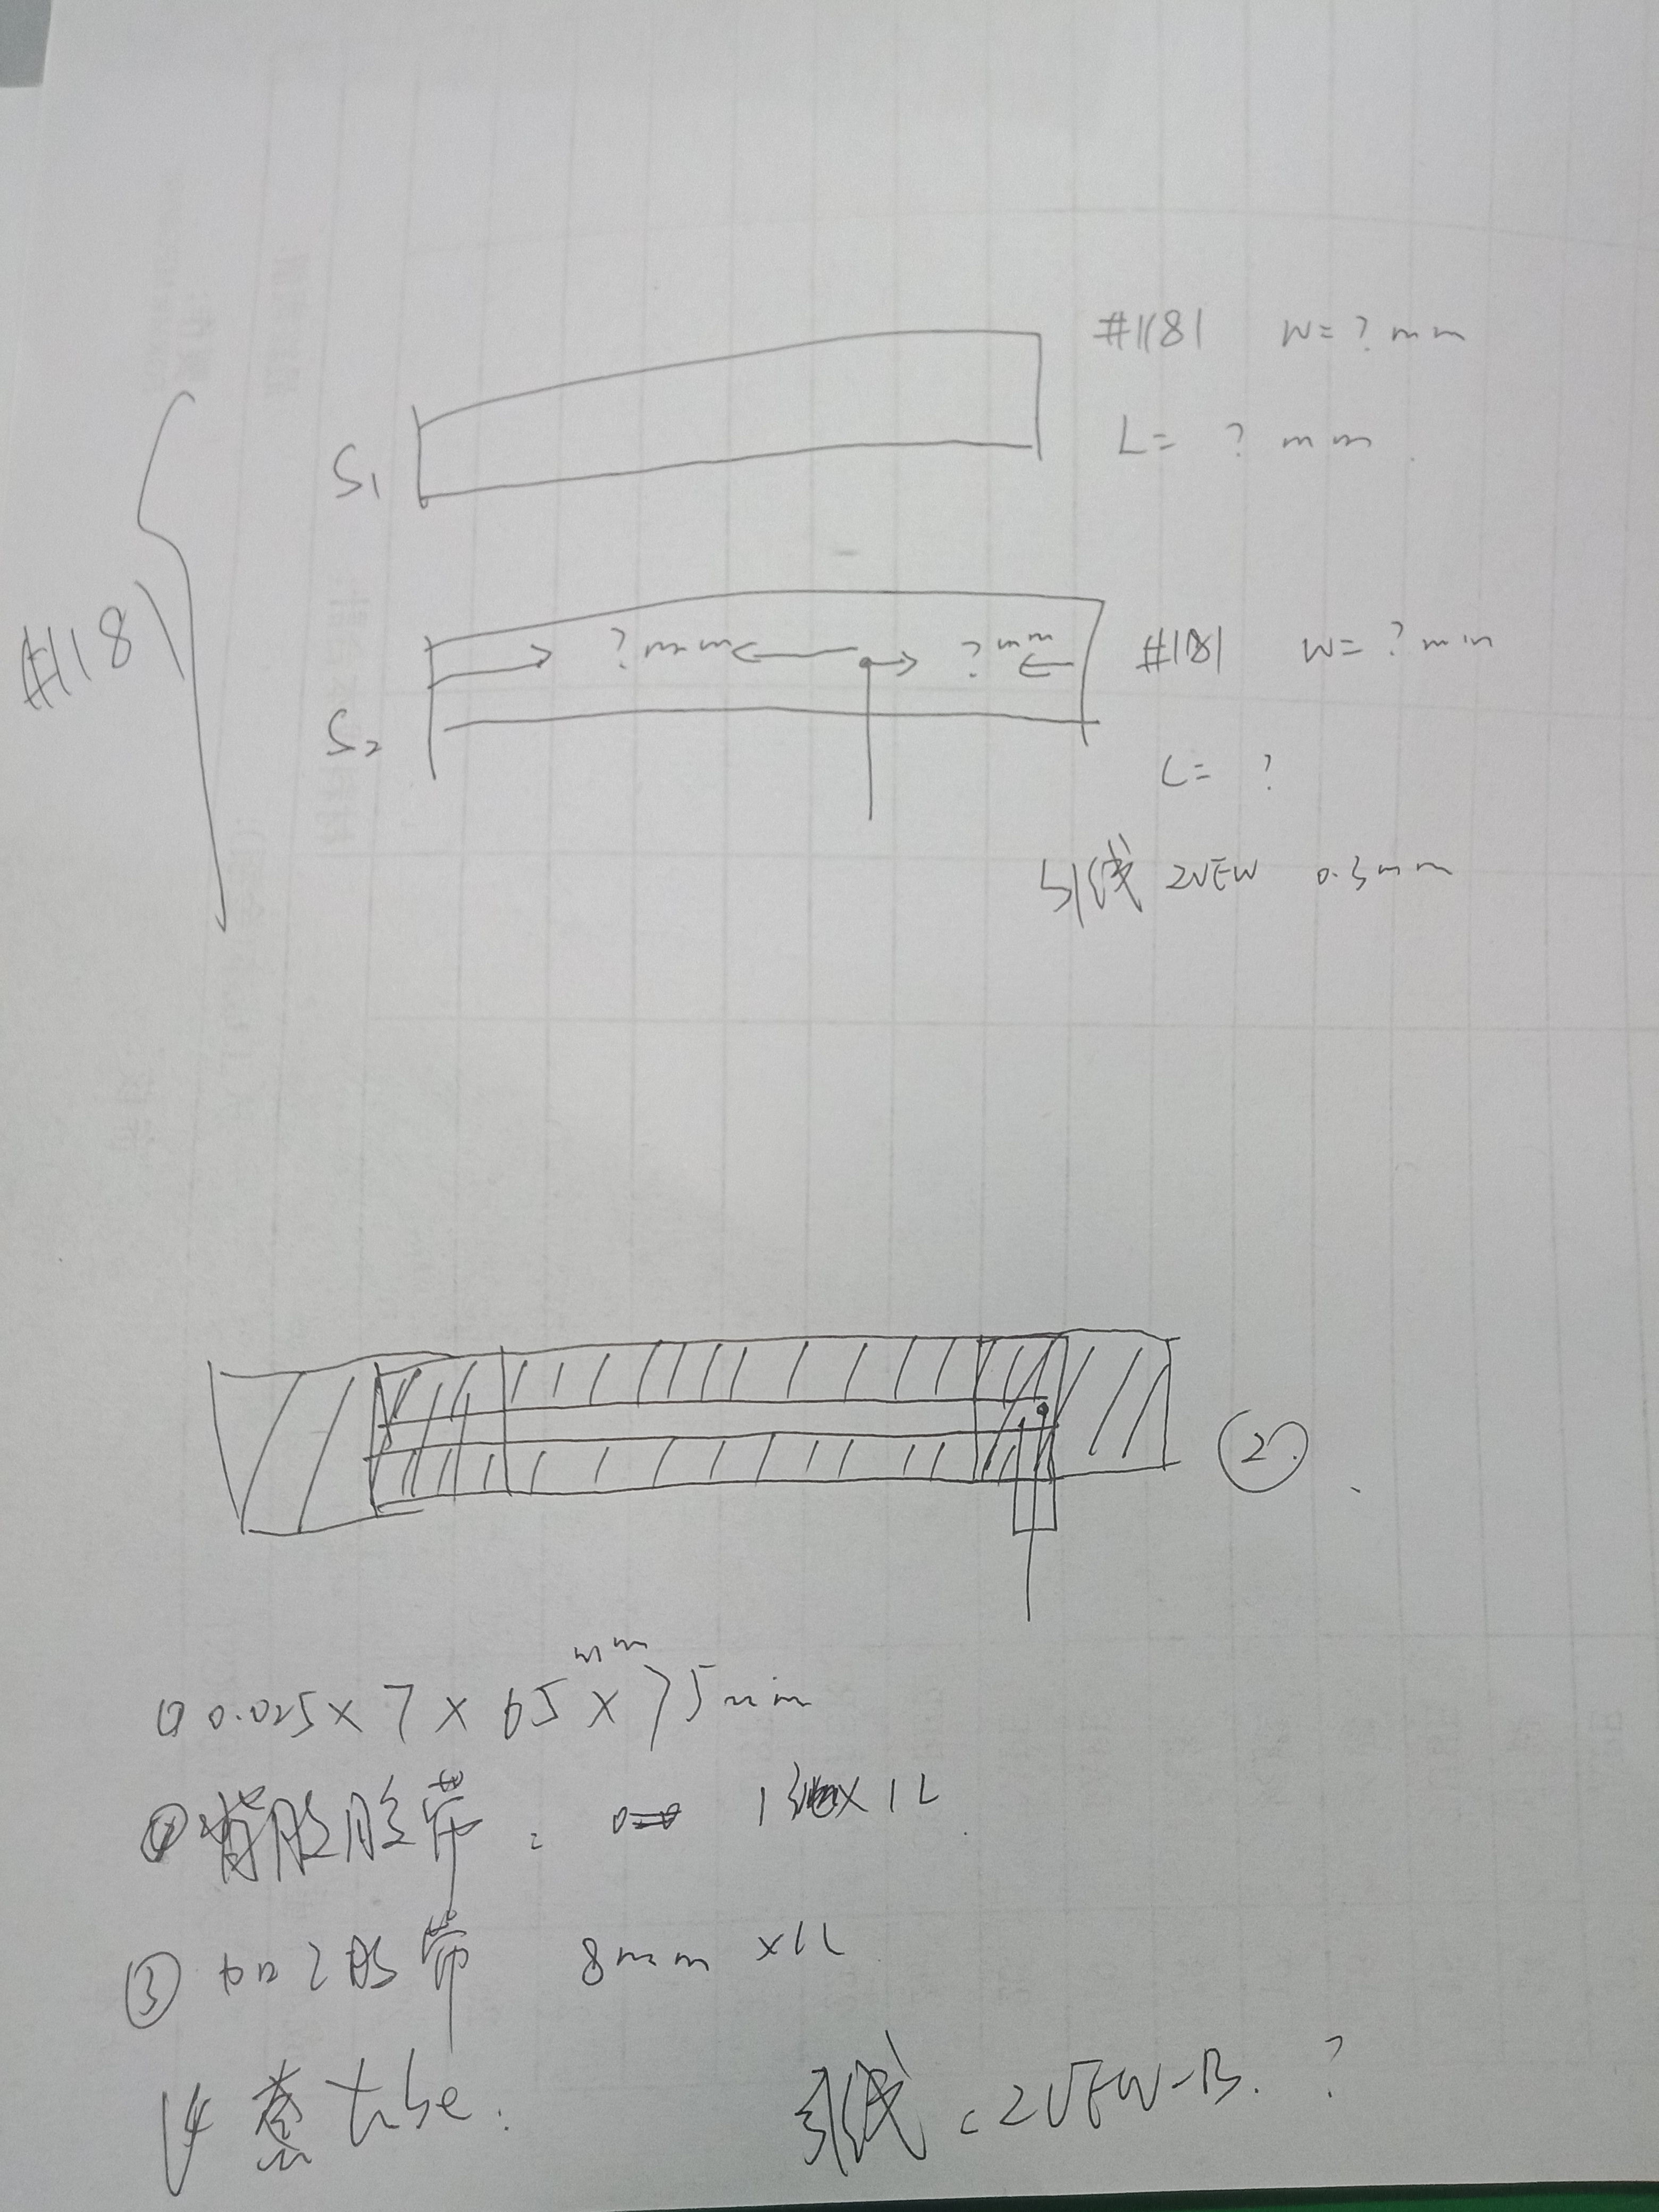 #1181 W=?mm
S₁ L= ? mm
#1181
?mm ?mm #1181 W=?mm
S₂
L= ?
引线 2UEW 0.3mm
②
① 0.025×7×65mm×75mm
背胶胶带: ×1L
③ 加2胶带 8mm ×1L
④ 套tube.
引线:2UEW-B. ?